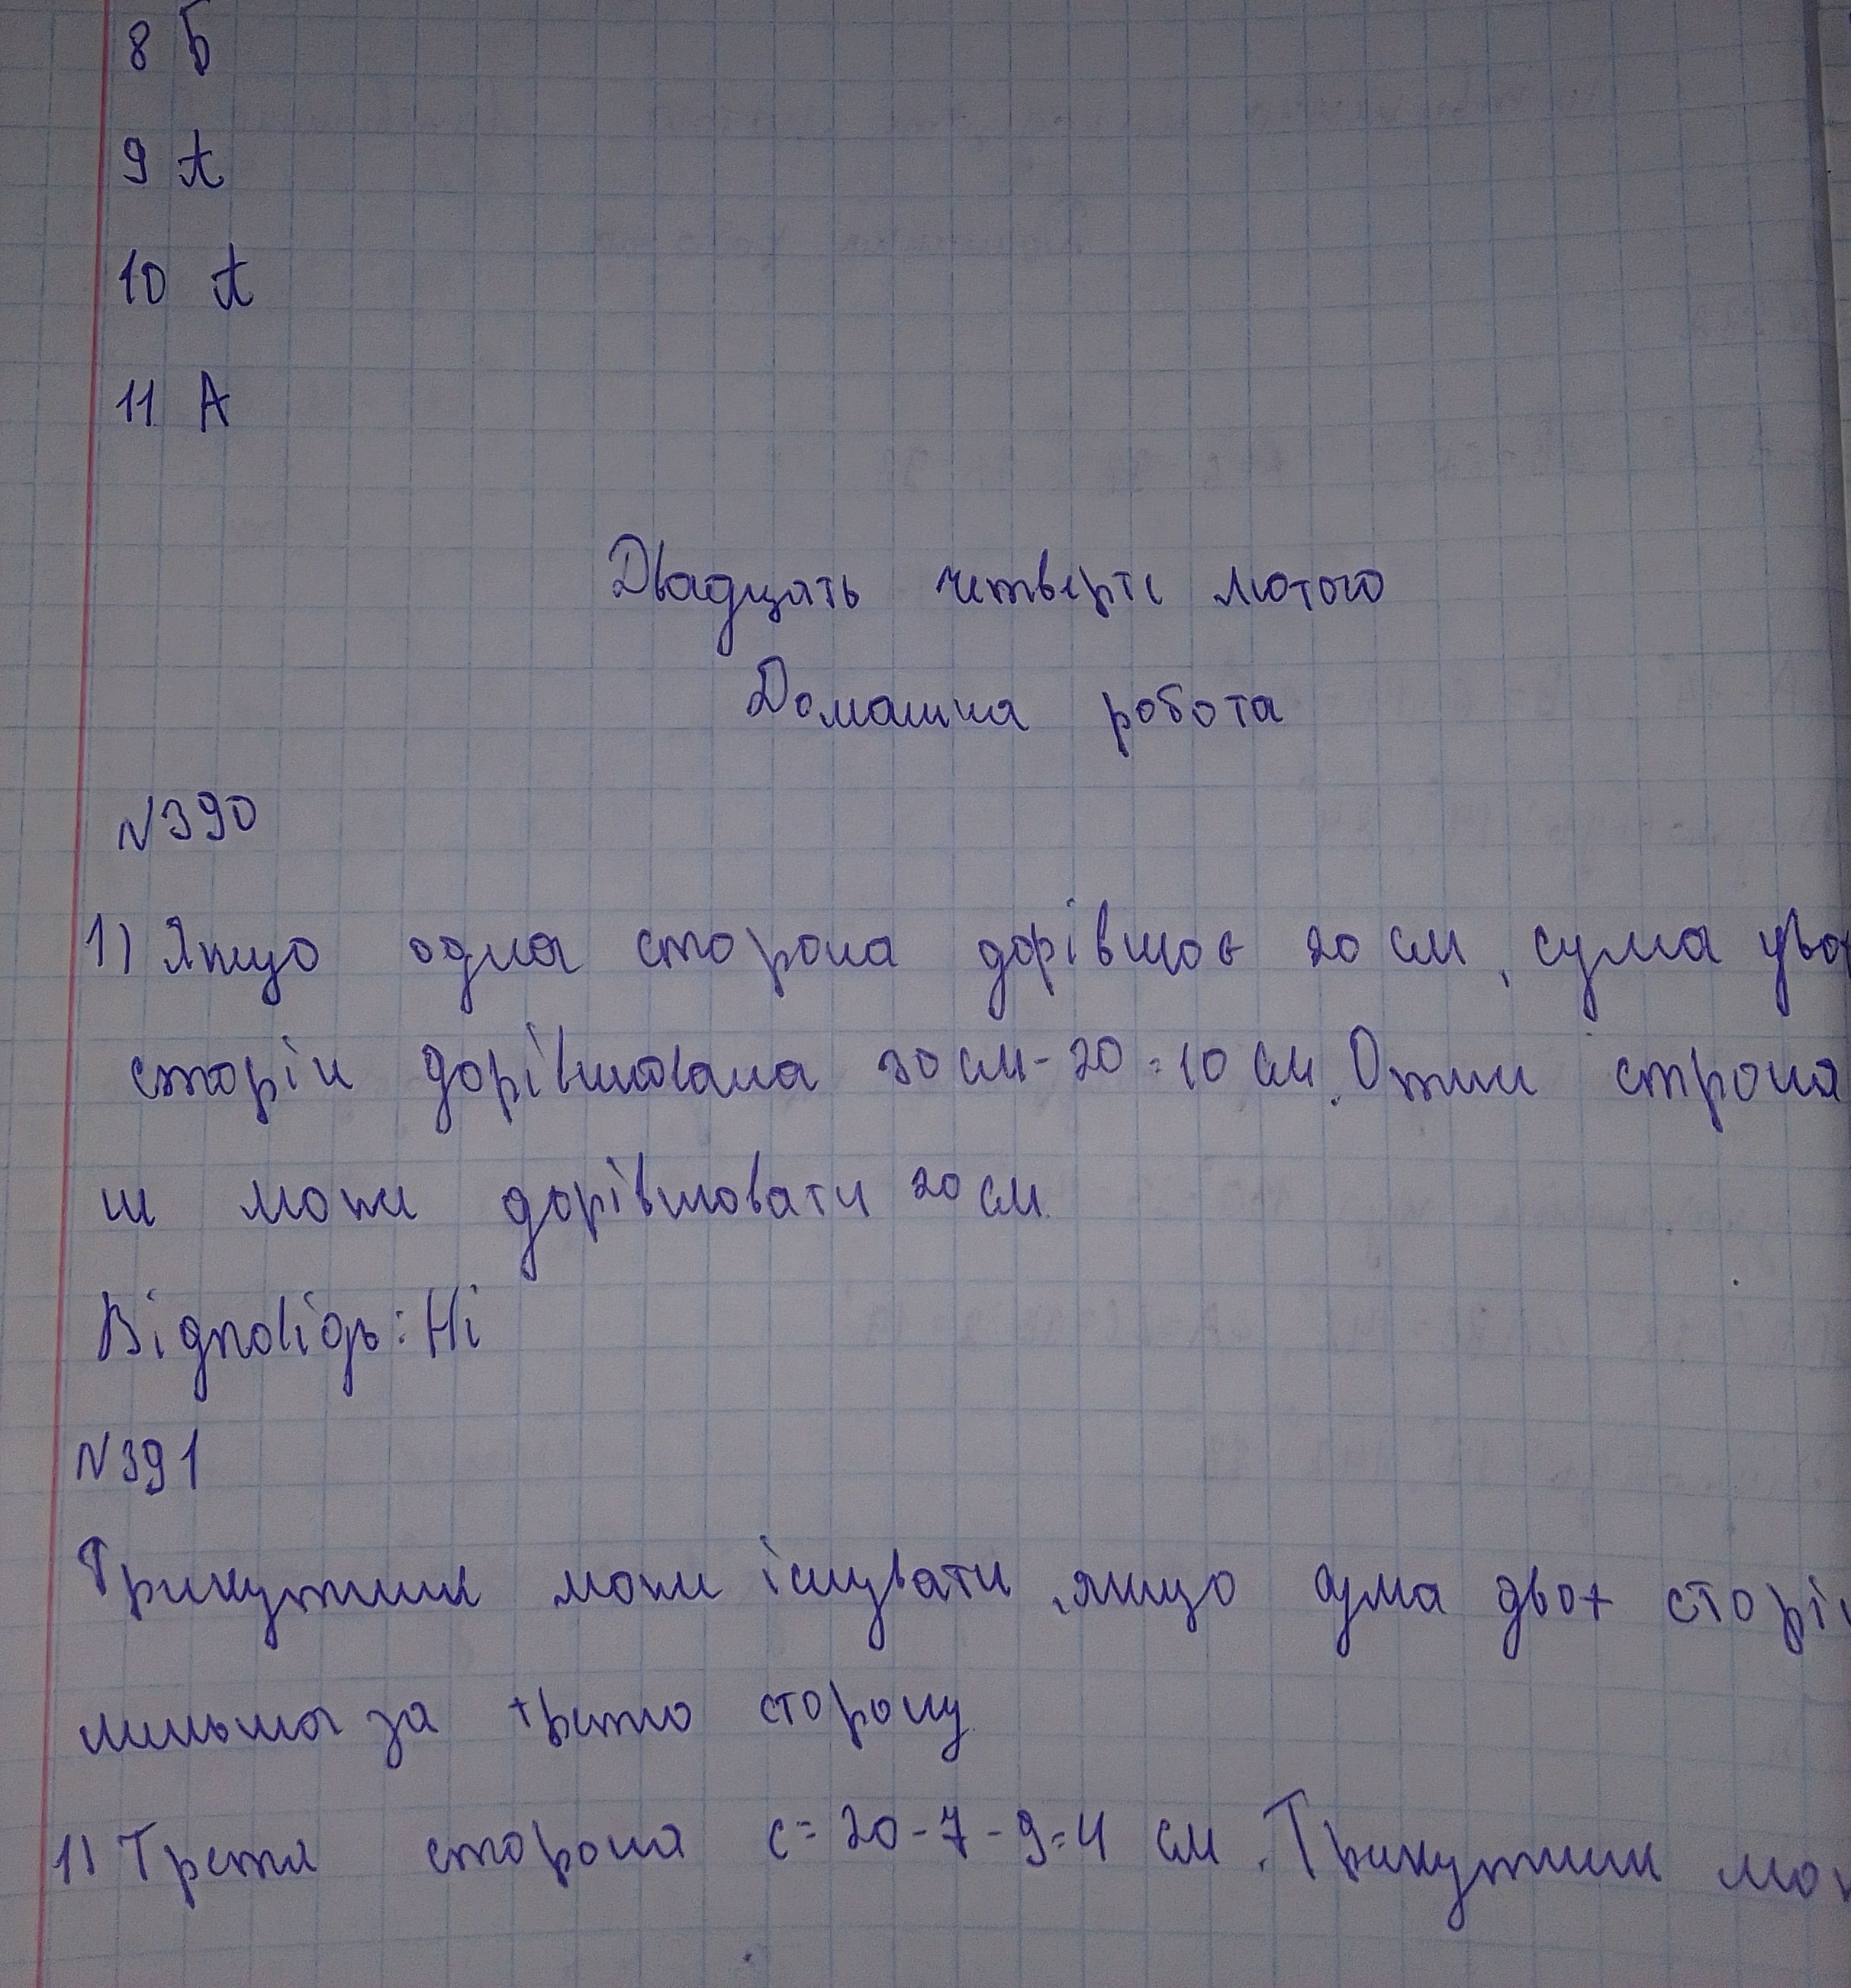 8 Б
9 А
10 А
11 А
Двадцять четверте лютого
Домашня робота
№390
1) Якщо одна сторона дорівнює 20 см, сума двох
сторін дорівнювала 30 см - 20 = 10 см. Отже строна
не може дорівнювати 20 см.
Відповідь: Ні
№391
Трикутник може існувати, якщо сума двох сторін
меньша за третю сторону
1) Третя сторона c = 20 - 7 - 9 = 4 см. Трикутник мож